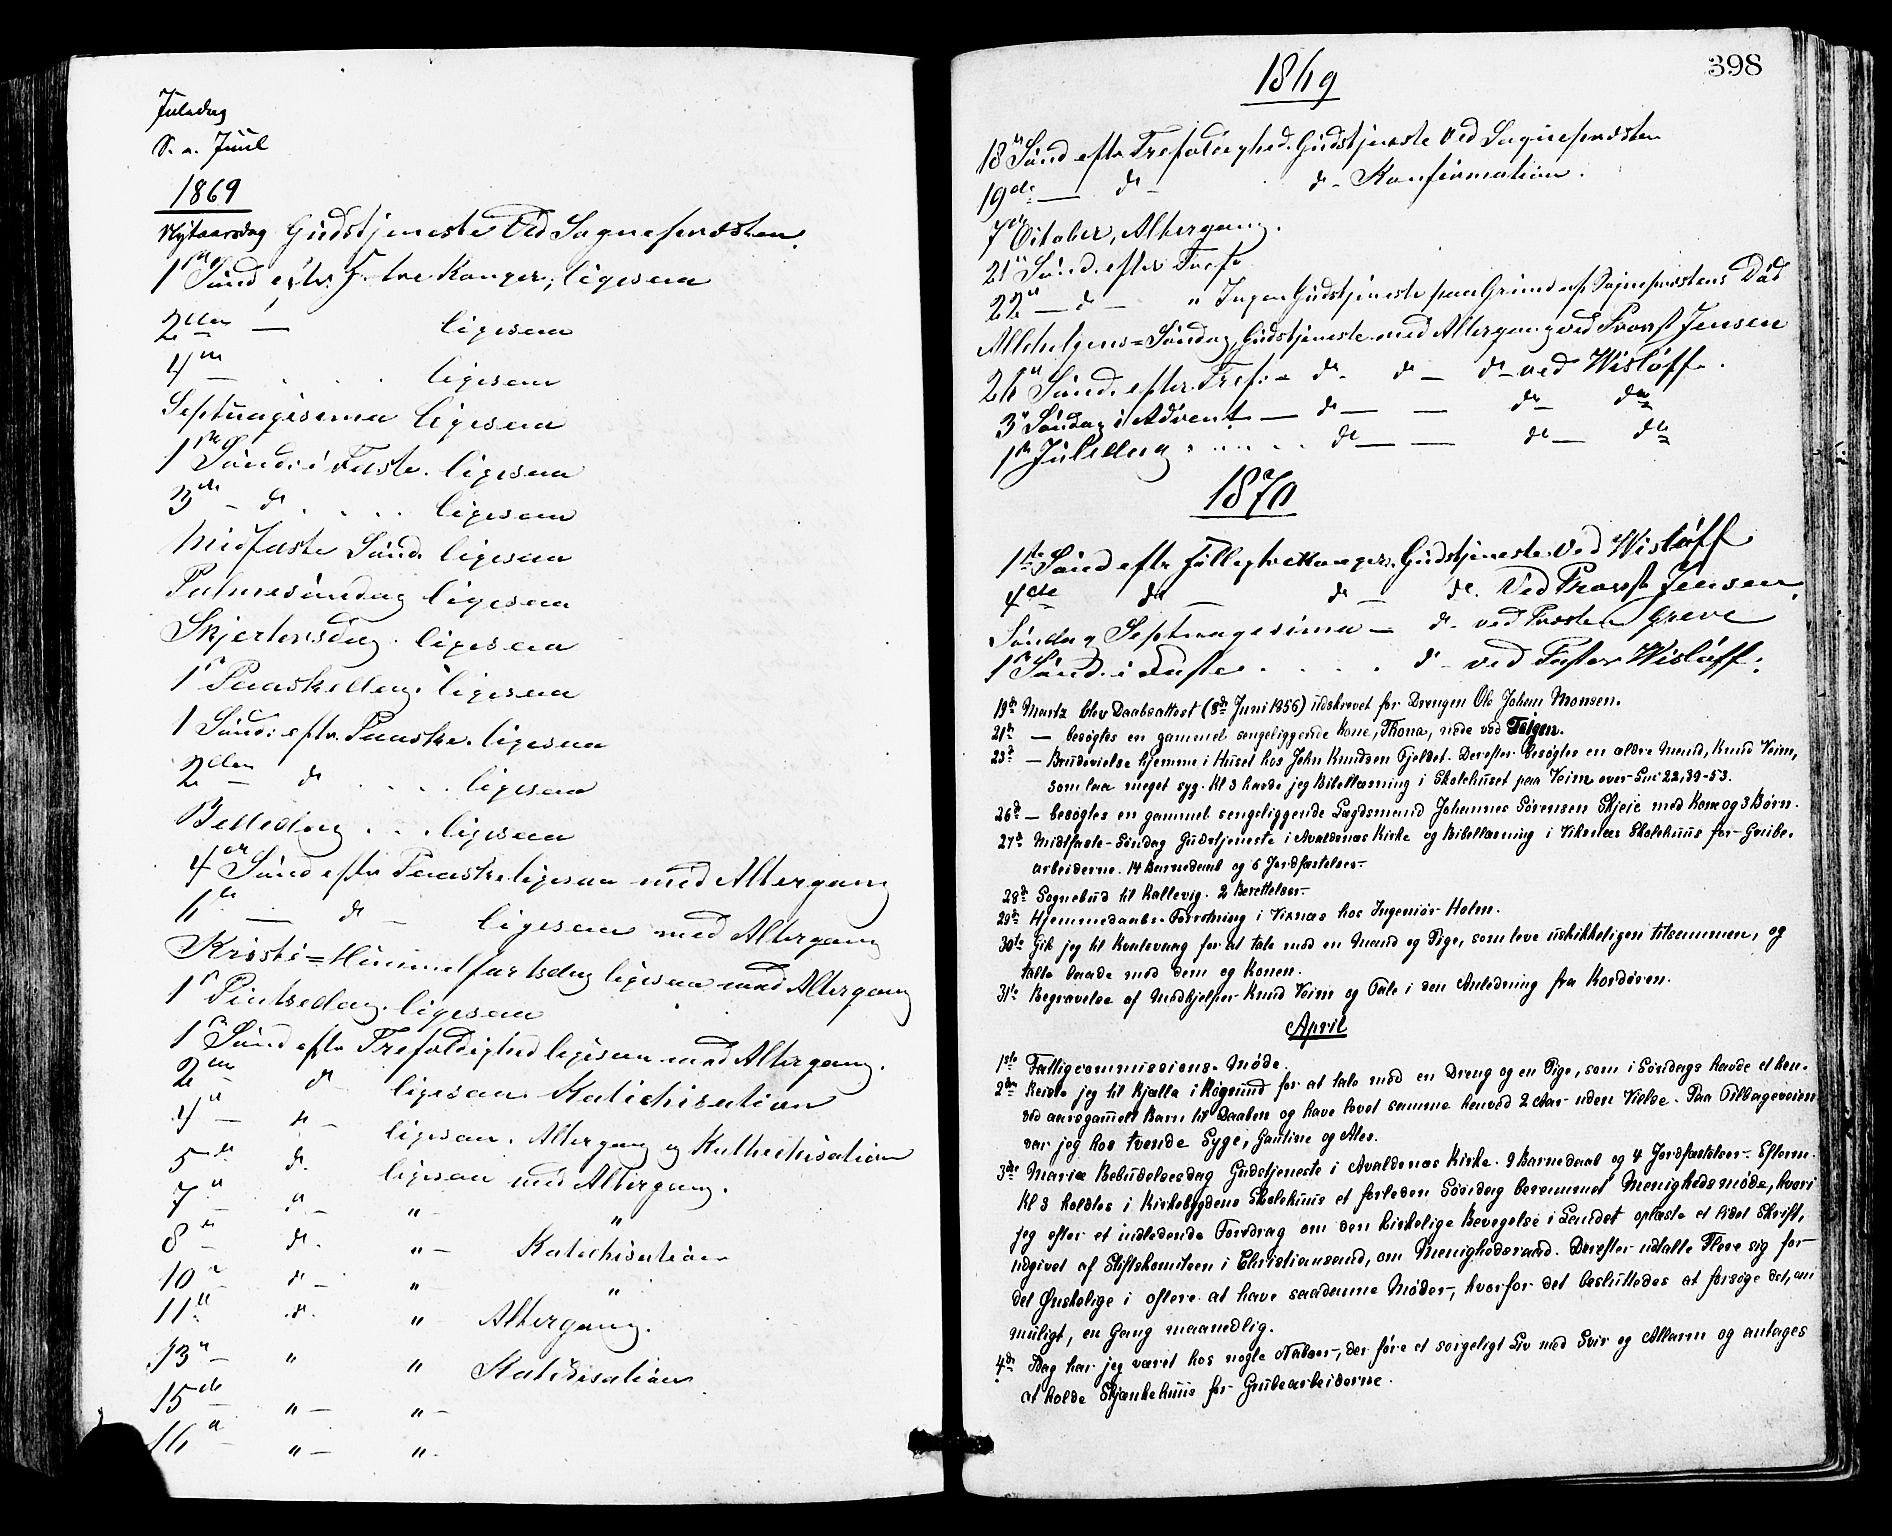 Juledag
S. e. Juul
1869
Nytaarsdag Gudstjeneste Ved Sognepræsten.
1ste Sønd efter H. tre Konger, ligesaa
2den — ligesaa
4de — . . . ligesaa
Septuagesima ligesaa
1ste Sønd. i Faste. ligesaa
3die — do . . . . ligesaa
Midfaste Sønd. ligesaa
Palmesøndag ligesaa
Skjertorsdag. ligesaa
1ste Paaskedag. ligesaa
1 Sønd: eftr Paaske. ligesaa
2den — do . . . . ligesaa
Bededag . . . ligesaa
4de Sønd eftr Paaske ligesaa med Altergang
6te — do — ligesaa med Altergang
Kristi=Himmelfartsdag ligesaa med Altergang
1ste Pintsedag. ligesaa
1ste Sønd eftr Trefoldighed ligesaa med Altergang.
2den — do — ligesaa. Katichisation
4de — do — ligesaa. Altergang og Kathechisation
5te — do. ligesaa med Altergang.
7de — do — " — "
8de — do. " — Katichisation
10de — do — " — "
11te — do. " Altergang.
13de — " " Katichisation
15de — " — " —
16de — " — " —
398
1869
18de Sønd eftr Trefoldighed. Gudstjeneste Ved Sognepræsten
19de — do — do — Konfirmation.
7de October, Altergang.
21de Sønd. efter Tref.
22de — do — " Ingen Gudstjeneste paa Grund af Sognepræstens Død
Allehelgens=Søndag, Gudstjeneste med Altergang ved Provst Jensen
26de Sønd. efter Tref: — do — do — do — ved Wisløff.
3die Søndag i Advent — do — — do — do
1ste Juledag . . . . . do — — do — do
1870
1ste Sønd eftr Helligtrekonger. Gudstjeneste. Ved Wisløff
4de do — do — do. Ved Provst Jensen.
Søndag Septuagesima — do — ved Præsten Greve
1ste Sønd. i Faste . . . . do — ved Pastor Wisløff.
19de Martz blev Daabsattest (8de Juni 1856) udskrevet for Drengen Ole Johan Monsen.
21de — besøgtes en gammel sengeliggende Kone, Thona, nede ved Teigen.
23de — Brudevielse hjemme i Huset hos John Knudsen Fjeldet. Derefter besøgtes en ældre Mand, Knud Veim,
som laa meget syg. Kl 3 havde jeg Bibellæsning i Skolehuset paa Veim over Luc 22,39-53.
26de — besøgtes en gammel sengeliggende Lægdsmand Johannes Sörensen Skjeie med Kone og 3 Børn.
27de Midtfaste-Søndag Gudstjeneste i Avaldsnes Kirke og Bibellæsning i Viksnæs Skolehuus for Grube-
arbeiderne. 14 Barnedaab og 6 Jordfæstelser.
28de Sognebud til Kallevig. 2 Berettelser.
29de Hjemmedaabs-Forretning i Vixnæs hos Ingeniør Holm.
30te Gik jeg til Kvalevaag for at tale med en Mand og Pige, som leve uskikkeligen tilsammen, og
talte baade med dem og Konen.
31te Begravelse af Medhjelper Knud Veim og Tale i den Anledning fra Kordøren.
April
1ste Fattigcommissions-Møde.
2den Reiste jeg til Kjalle i Røgsund for at tale med en Dreng og en Pige, som i Søndags havde et hen-
ved aarsgammelt Barn til Daaben og have levet sammen henved 2 Aar uden Vielse. Paa Tilbageveien
var jeg hos tvende Syge, Gantine og Ales.
3die Mariæ Bebudelsesdag Gudstjeneste i Avaldsnes Kirke. 9 Barnedaab og 4 Jordfæstelser. Efterm.
Kl 3 holdtes i Kirkebygdens Skolehuus et forleden Søndag berammet Menighedsmøde, hvori
jeg efter et indledende Foredrag om den kirkelige Bevegelse i Landet oplæste et lidet Skrift,
udgivet af Stiftskomiteen i Christianssand, om Menighedsraad. Derefter udtalte Flere sig for
det Ønskelige i oftere at have saadanne Møder, hvorfor det besluttedes at forsøge det, om
muligt, en Gang maanedlig.
4de Dag har jeg været hos nogle Naboer, der føre et sørgeligt Liv med Svir og Allarm og antages
at holde Skjænkehuus for Grubearbeiderne.